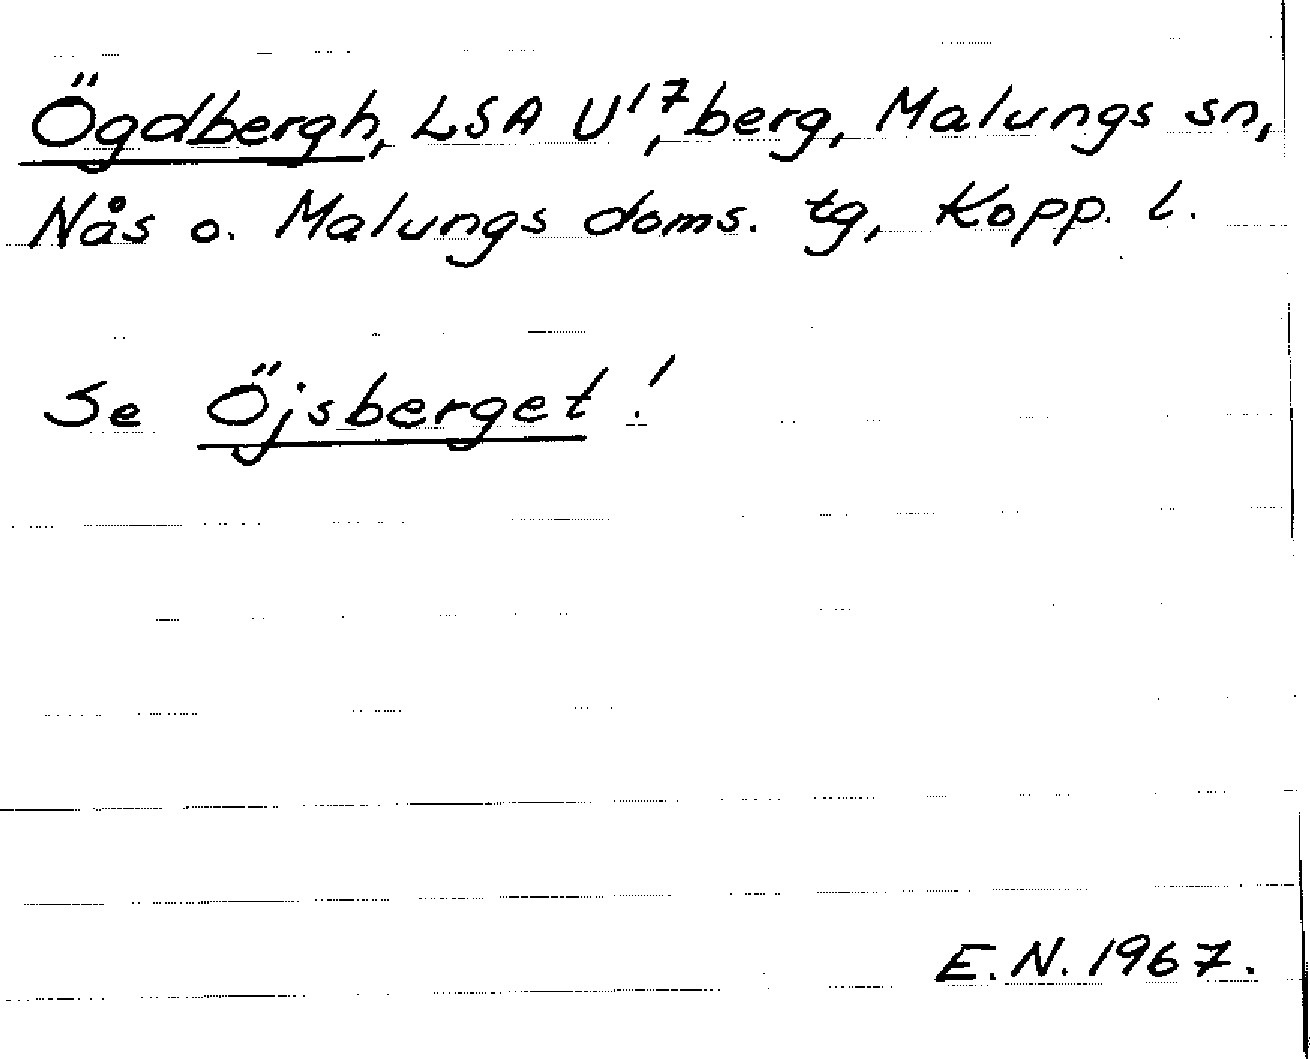 Ögdbergh, LSA U17, berg, Malungs sn,
Nås o. Malungs doms. tg, Kopp. l.
Se Öjsberget!
E.N. 1967.